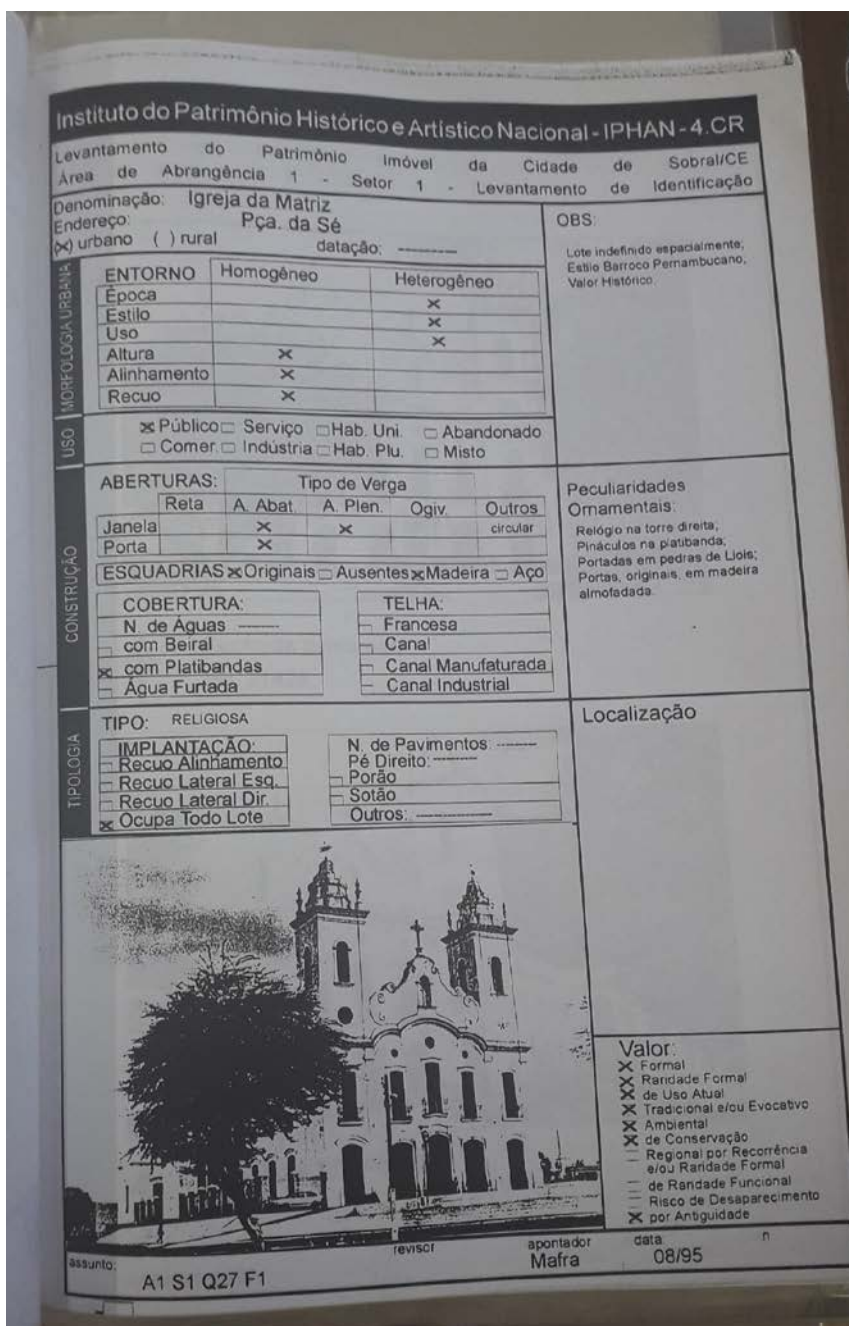 Instituto do Patrimônio Histórico e Artístico Nacional - IPHAN - 4.CR
Levantamento do Patrimônio Imóvel da Cidade de Sobral/CE
Área de Abrangência 1 - Setor 1 - Levantamento de Identificação
Denominação: Igreja da Matriz
Endereço: Pça. da Sé
(x) urbano ( ) rural datação: -------
OBS:
Lote indefinido espacialmente;
Estilo Barroco Pernambucano,
Valor Histórico.
MORFOLOGIA URBANA
ENTORNO Homogêneo Heterogêneo
Época x
Estilo x
Uso x
Altura x
Alinhamento x
Recuo x
USO
x Público □ Serviço □ Hab. Uni. □ Abandonado
□ Comer. □ Indústria □ Hab. Plu. □ Misto
CONSTRUÇÃO
ABERTURAS: Tipo de Verga
Reta A. Abat. A. Plen. Ogiv. Outros
Janela x x circular
Porta x
ESQUADRIAS x Originais □ Ausentes x Madeira □ Aço
COBERTURA:
N. de Águas -------
□ com Beiral
x com Platibandas
□ Água Furtada
TELHA:
□ Francesa
□ Canal
□ Canal Manufaturada
□ Canal Industrial
Peculiaridades
Ornamentais:
Relógio na torre direita;
Pináculos na platibanda;
Portadas em pedras de Liois;
Portas, originais, em madeira
almofadada.
TIPOLOGIA
TIPO: RELIGIOSA
IMPLANTAÇÃO:
□ Recuo Alinhamento
□ Recuo Lateral Esq.
□ Recuo Lateral Dir.
x Ocupa Todo Lote
N. de Pavimentos: -------
Pé Direito: -------
□ Porão
□ Sotão
Outros: -------
Localização
Valor:
x Formal
x Raridade Formal
x de Uso Atual
x Tradicional e/ou Evocativo
x Ambiental
x de Conservação
□ Regional por Recorrência
e/ou Raridade Formal
□ de Raridade Funcional
□ Risco de Desaparecimento
x por Antiguidade
assunto: A1 S1 Q27 F1
revisor
apontador Mafra
data 08/95
n